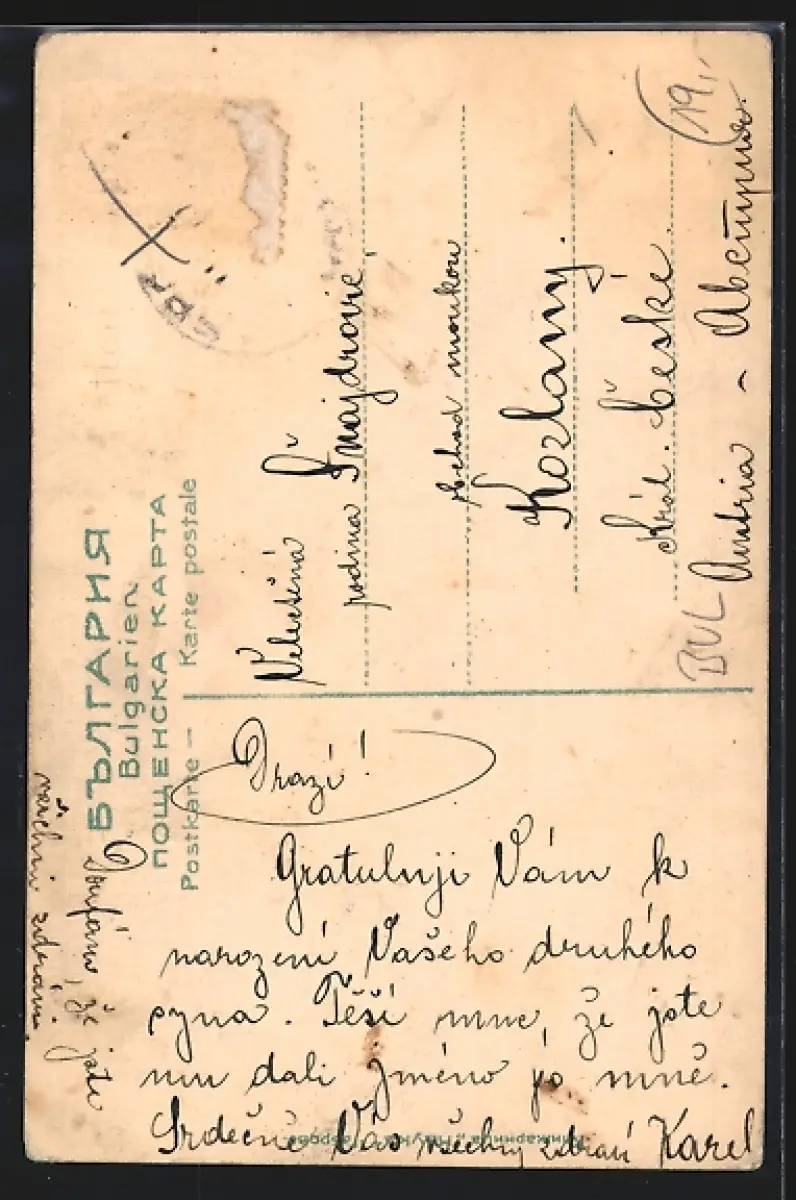 БЪЛГАРИЯ
Bulgarien
ПОЩЕНСКА КАРТА
Postkarte — Karte postale
Velectěná
rodina Šnajdrovic,
obchod moukou
Kozlany.
Král. České.
Austria - Австрия.
BUL
19,-
Drazí!
Gratuluji Vám k
narození Vašeho druhého
syna. Těší mne, že jste
mu dali jméno po mně.
Srdečně Vás všechny zdraví Karel
Doufám, že jste
všichni zdrávi.